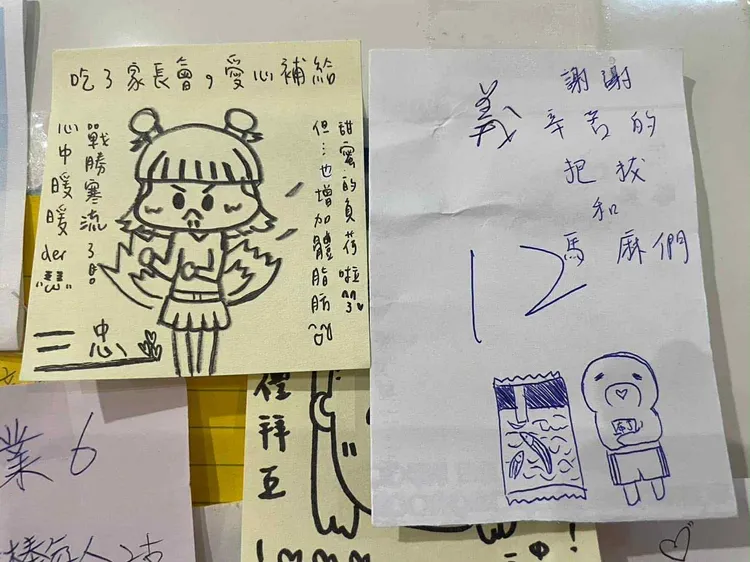 吃了家長會,愛心補給
戰勝寒流了!
心中暖暖der
甜蜜的負荷啦
但…也增加體脂肪
二忠
義
12
謝謝
辛苦的
把拔
和
馬麻們
業6
禮拜五